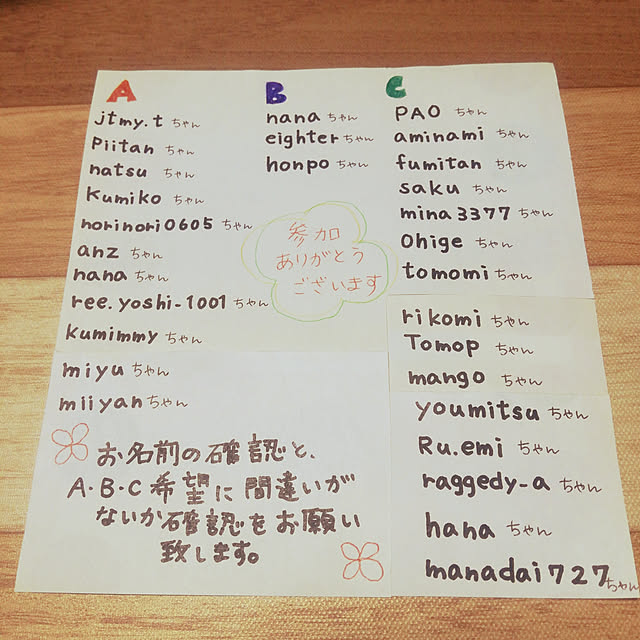 A
jtmy.t ちゃん
Piitan ちゃん
natsu ちゃん
Kumiko ちゃん
norinori0605 ちゃん
anz ちゃん
nana ちゃん
ree.yoshi-1001 ちゃん
kumimmy ちゃん
miyu ちゃん
miiyan ちゃん
B
nana ちゃん
eighter ちゃん
honpo ちゃん
C
PAO ちゃん
aminami ちゃん
fumitan ちゃん
saku ちゃん
mina3377 ちゃん
Ohige ちゃん
tomomi ちゃん
rikomi ちゃん
Tomop ちゃん
mango ちゃん
youmitsu ちゃん
Ru.emi ちゃん
raggedy-a ちゃん
hana ちゃん
manadai727 ちゃん
参加
ありがとう
ございます
お名前の確認と、
A・B・C希望に間違いが
ないか確認をお願い
致します。